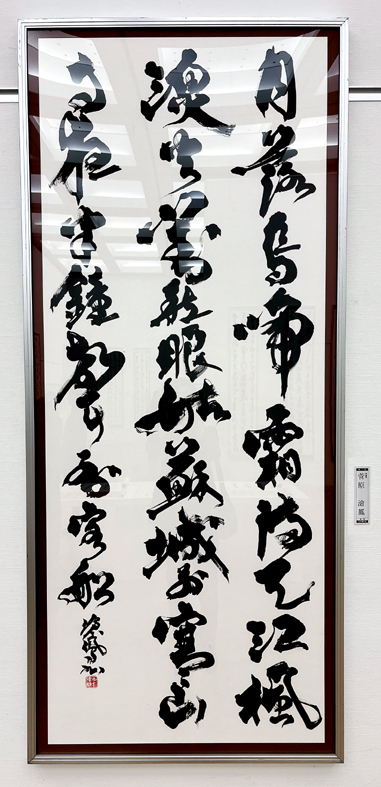 月落烏啼霜滿天江楓
漁火對愁眠姑蘇城外寒山
寺夜半鐘聲到客船
滄鳳
菅原 滄鳳